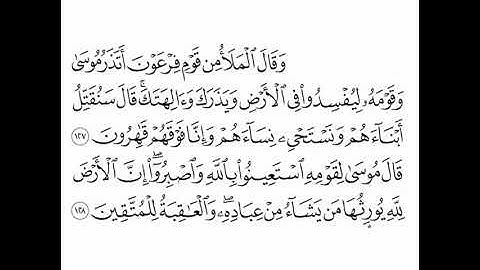 وَقَالَ ٱلْمَلَأُ مِن قَوْمِ فِرْعَوْنَ أَتَذَرُ مُوسَىٰ
وَقَوْمَهُۥ لِيُفْسِدُوا۟ فِى ٱلْأَرْضِ وَيَذَرَكَ وَءَالِهَتَكَ ۚ قَالَ سَنُقَتِّلُ
أَبْنَآءَهُمْ وَنَسْتَحْىِۦ نِسَآءَهُمْ وَإِنَّا فَوْقَهُمْ قَٰهِرُونَ ١٢٧
قَالَ مُوسَىٰ لِقَوْمِهِ ٱسْتَعِينُوا۟ بِٱللَّهِ وَٱصْبِرُوٓا۟ ۖ إِنَّ ٱلْأَرْضَ
لِلَّهِ يُورِثُهَا مَن يَشَآءُ مِنْ عِبَادِهِۦ ۖ وَٱلْعَٰقِبَةُ لِلْمُتَّقِينَ ١٢٨